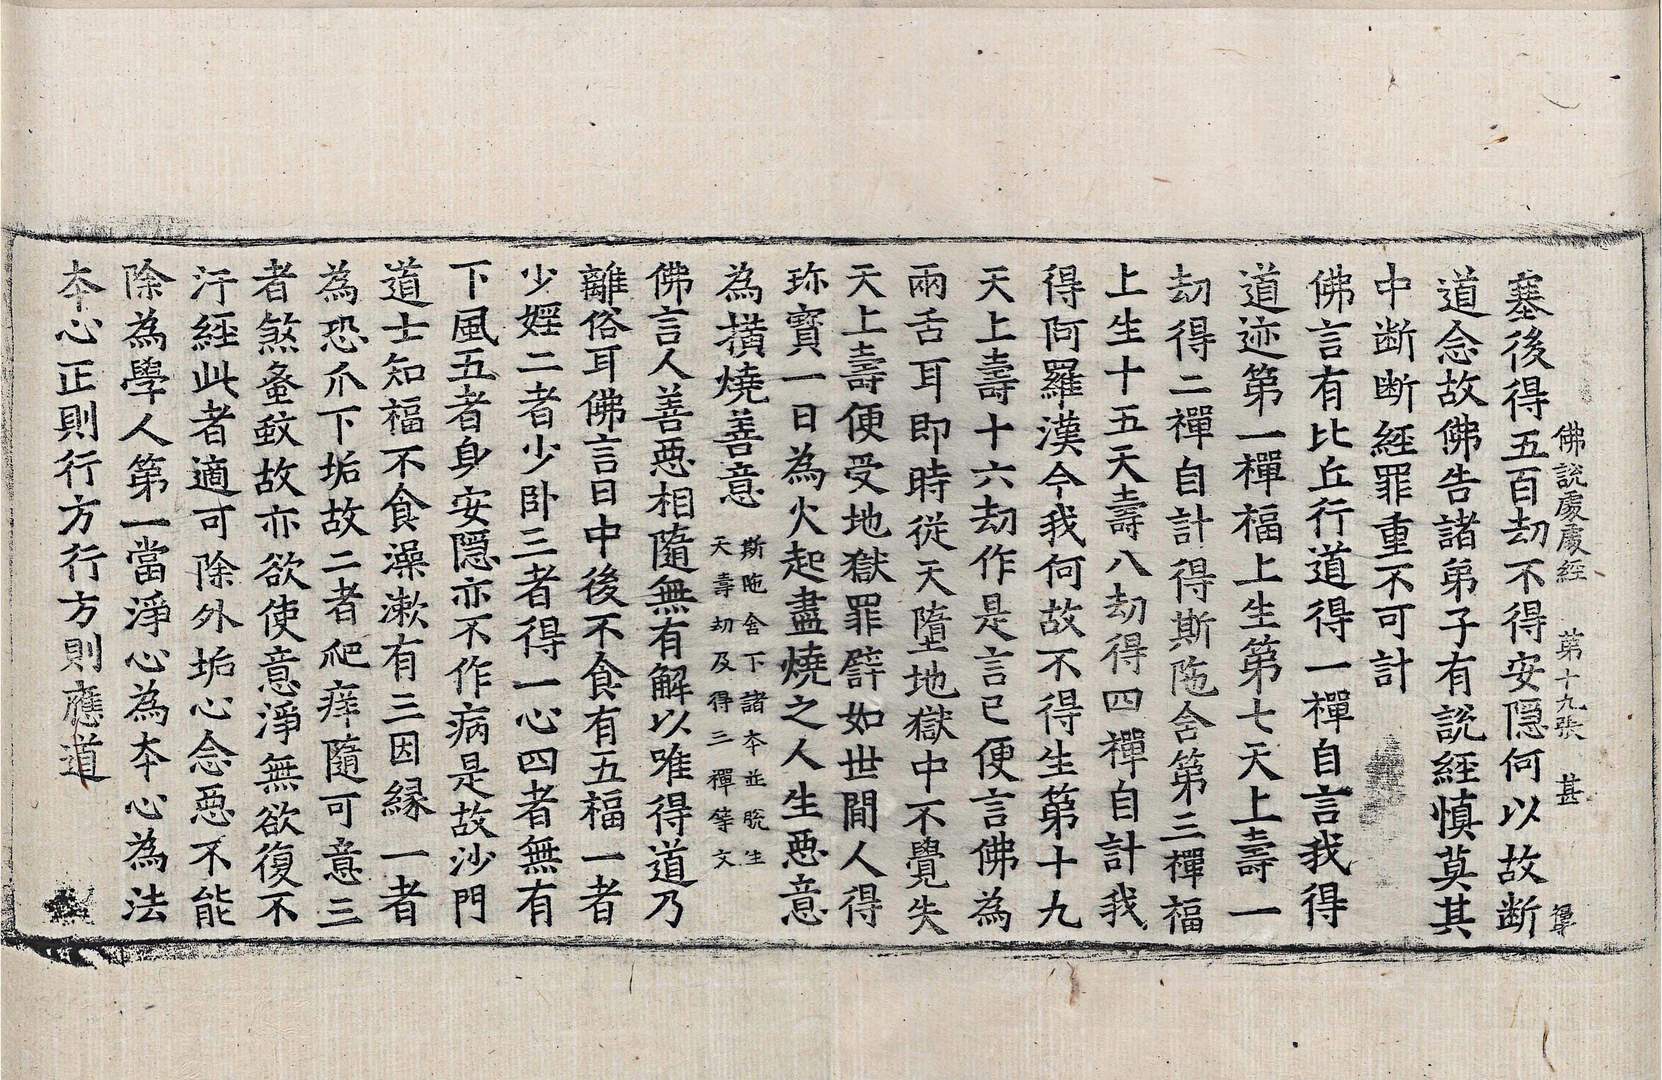 佛說處處經　第十九張　甚　
塞後得五百劫不得安隱何以故斷
道念故佛告諸弟子有說經慎莫其
中断断經罪重不可計
佛言有比丘行道得一禪自言我得
道迹第一禪福上生第七天上壽一
劫得二禪自計得斯陁含第三禪福
上生十五天壽八劫得四禪自計我
得阿羅漢今我何故不得生第十九
天上壽十六劫作是言已便言佛為
兩舌耳即時從天墮地獄中不覺失
天上壽便受地獄罪譬如世間人得
珎寳一日為火起盡燒之人生惡意
為横燒善意
斯陁含下諸夲並脫生
天壽劫及得三禪等文
佛言人善惡相隨無有解以唯得道乃
離俗耳佛言日中後不食有五福一者
少婬二者少卧三者得一心四者無有
下風五者身安隱亦不作病是故沙門
道士知福不食澡漱有三因緣一者
為恐爪下垢故二者爬痒隨可意三
者煞蚤蚊故亦欲使意淨無欲復不
汙經此者適可除外垢心念惡不能
除為學人第一當淨心為夲心為法
夲心正則行方行方則應道